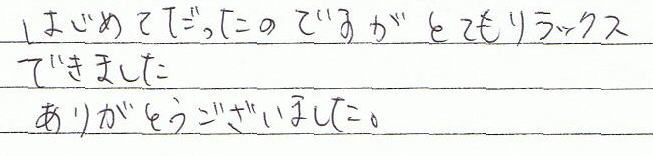 はじめてだったのですがとてもリラックス
できました
ありがとうございました。